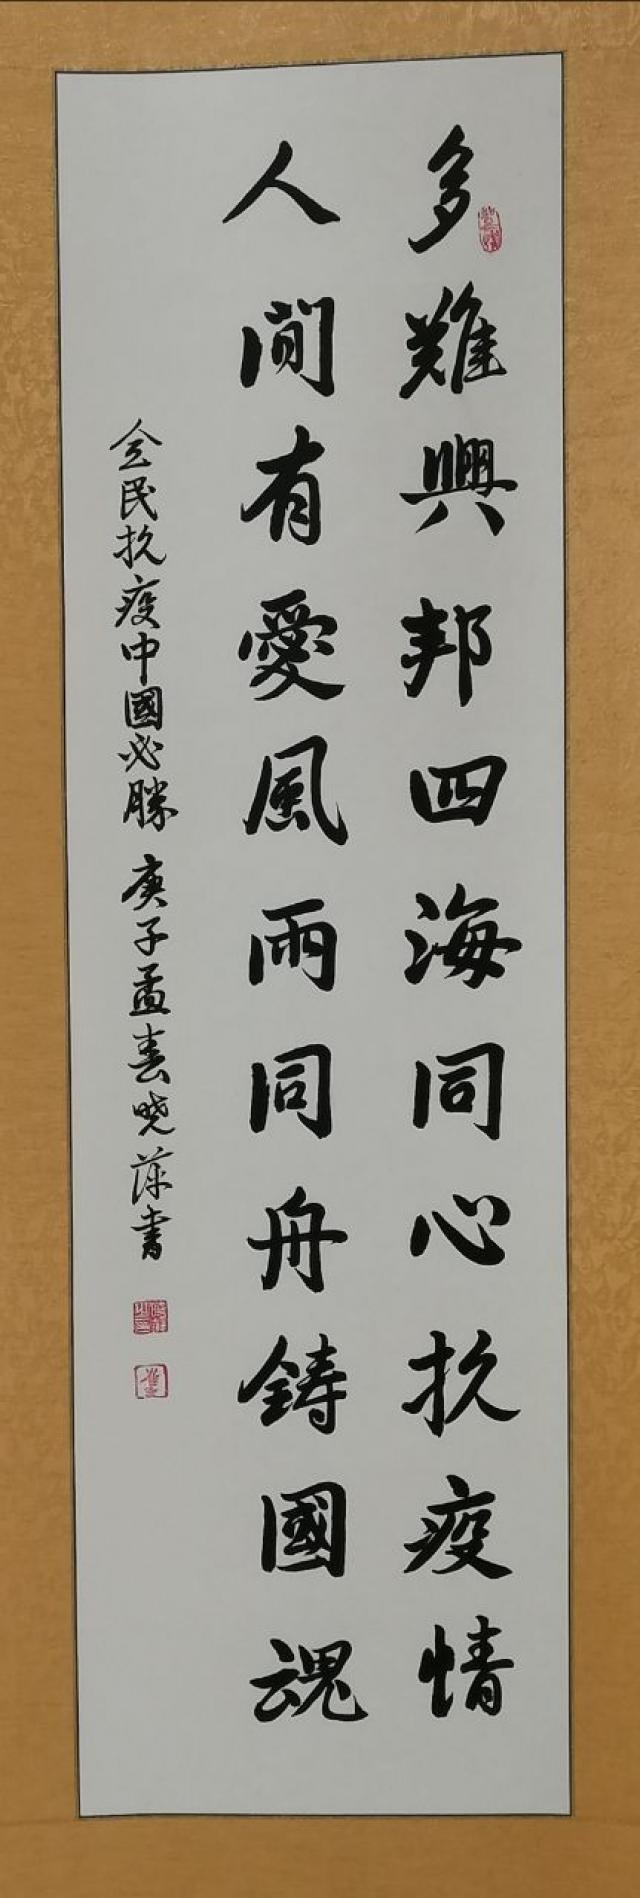 多難興邦四海同心抗疫情
人間有愛風雨同舟鑄國魂
全民抗疫中國必勝 庚子孟春曉萍書